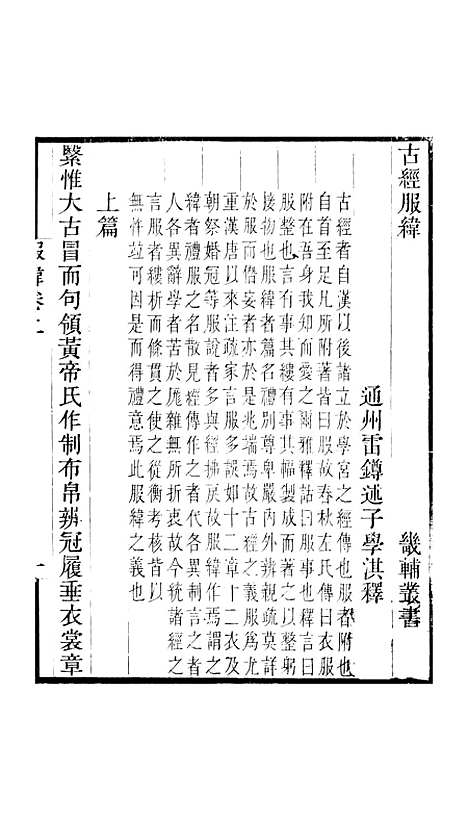 古經服緯　畿輔叢書
通州雷鐏述子學淇釋
古經者自漢以後諸立於學宮之經傳也服者附也
自首至足凡所附著皆曰服故春秋左氏傳曰衣服
附在吾身我知而愼之爾雅釋詁曰服事也釋言曰
服整也言有事其縷有事其幅製成而著之以整躬
接物也服緯者蓋名禮別尊卑嚴內外辨親疏莫詳
於服而僭妄者亦於是兆端焉故古經之義服爲尤
重漢唐以來注疏家言服多誤如十二章十二衣及
朝祭婚冠等服說者多與經拂戾故服緯作焉謂之
緯者禮服之名散見經傳作之者代各異制言之者
人各異辭學者苦於厖雜無所折衷故今統諸經之
言服者縷析而條貫之使之從衡考核皆以
無忤竝可因是而得禮意焉此服緯之義也
上篇
緊惟大古冒而句領黃帝氏作制布帛辨冠履垂衣裳章
服緯卷上　一